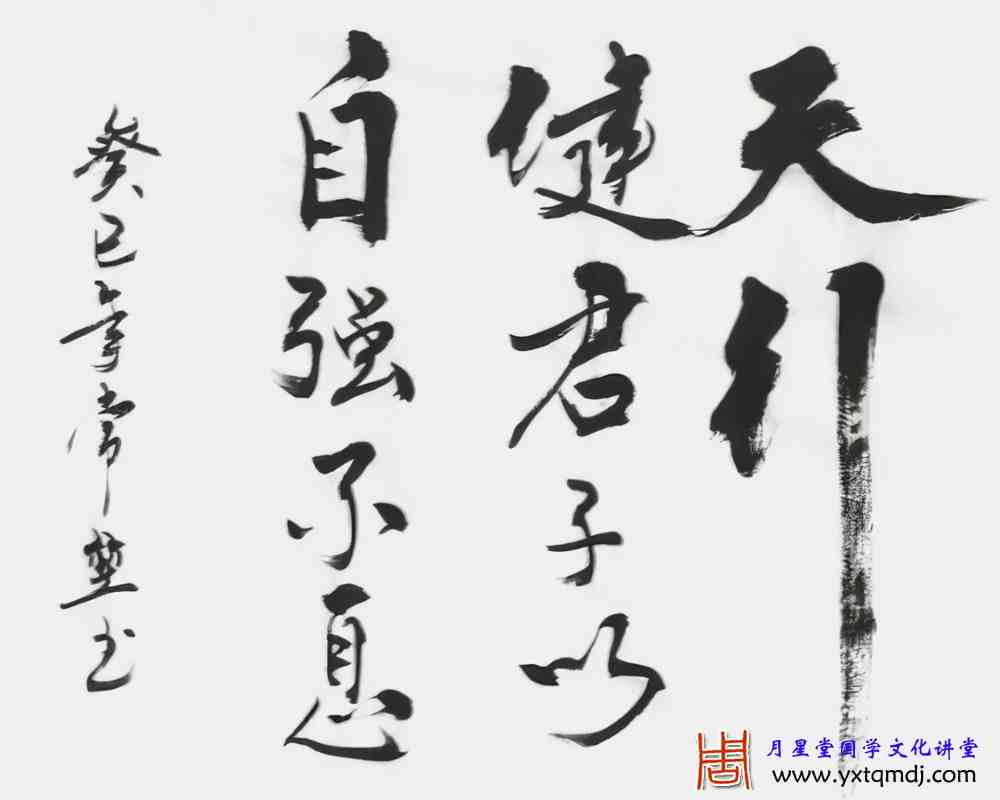 天行
健君子以
自强不息
癸巳年常樊书
月星堂国学文化讲堂
www.yxtqmdj.com